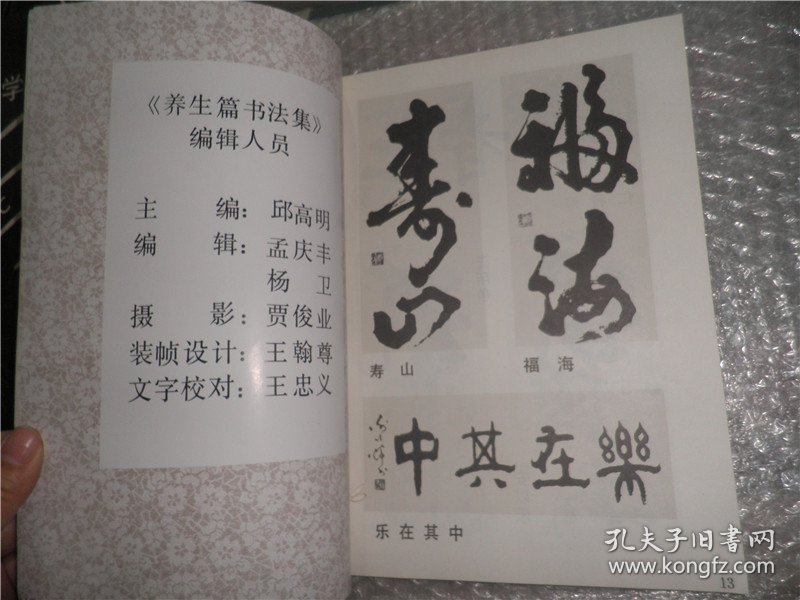 《养生篇书法集》
编辑人员
主 编：邱高明
编 辑：孟庆丰
杨 卫
摄 影：贾俊业
装帧设计：王翰尊
文字校对：王忠义
壽山
寿山
福海
福海
樂在其中
乐在其中
13
学
孔夫子旧书网
www.kongfz.com